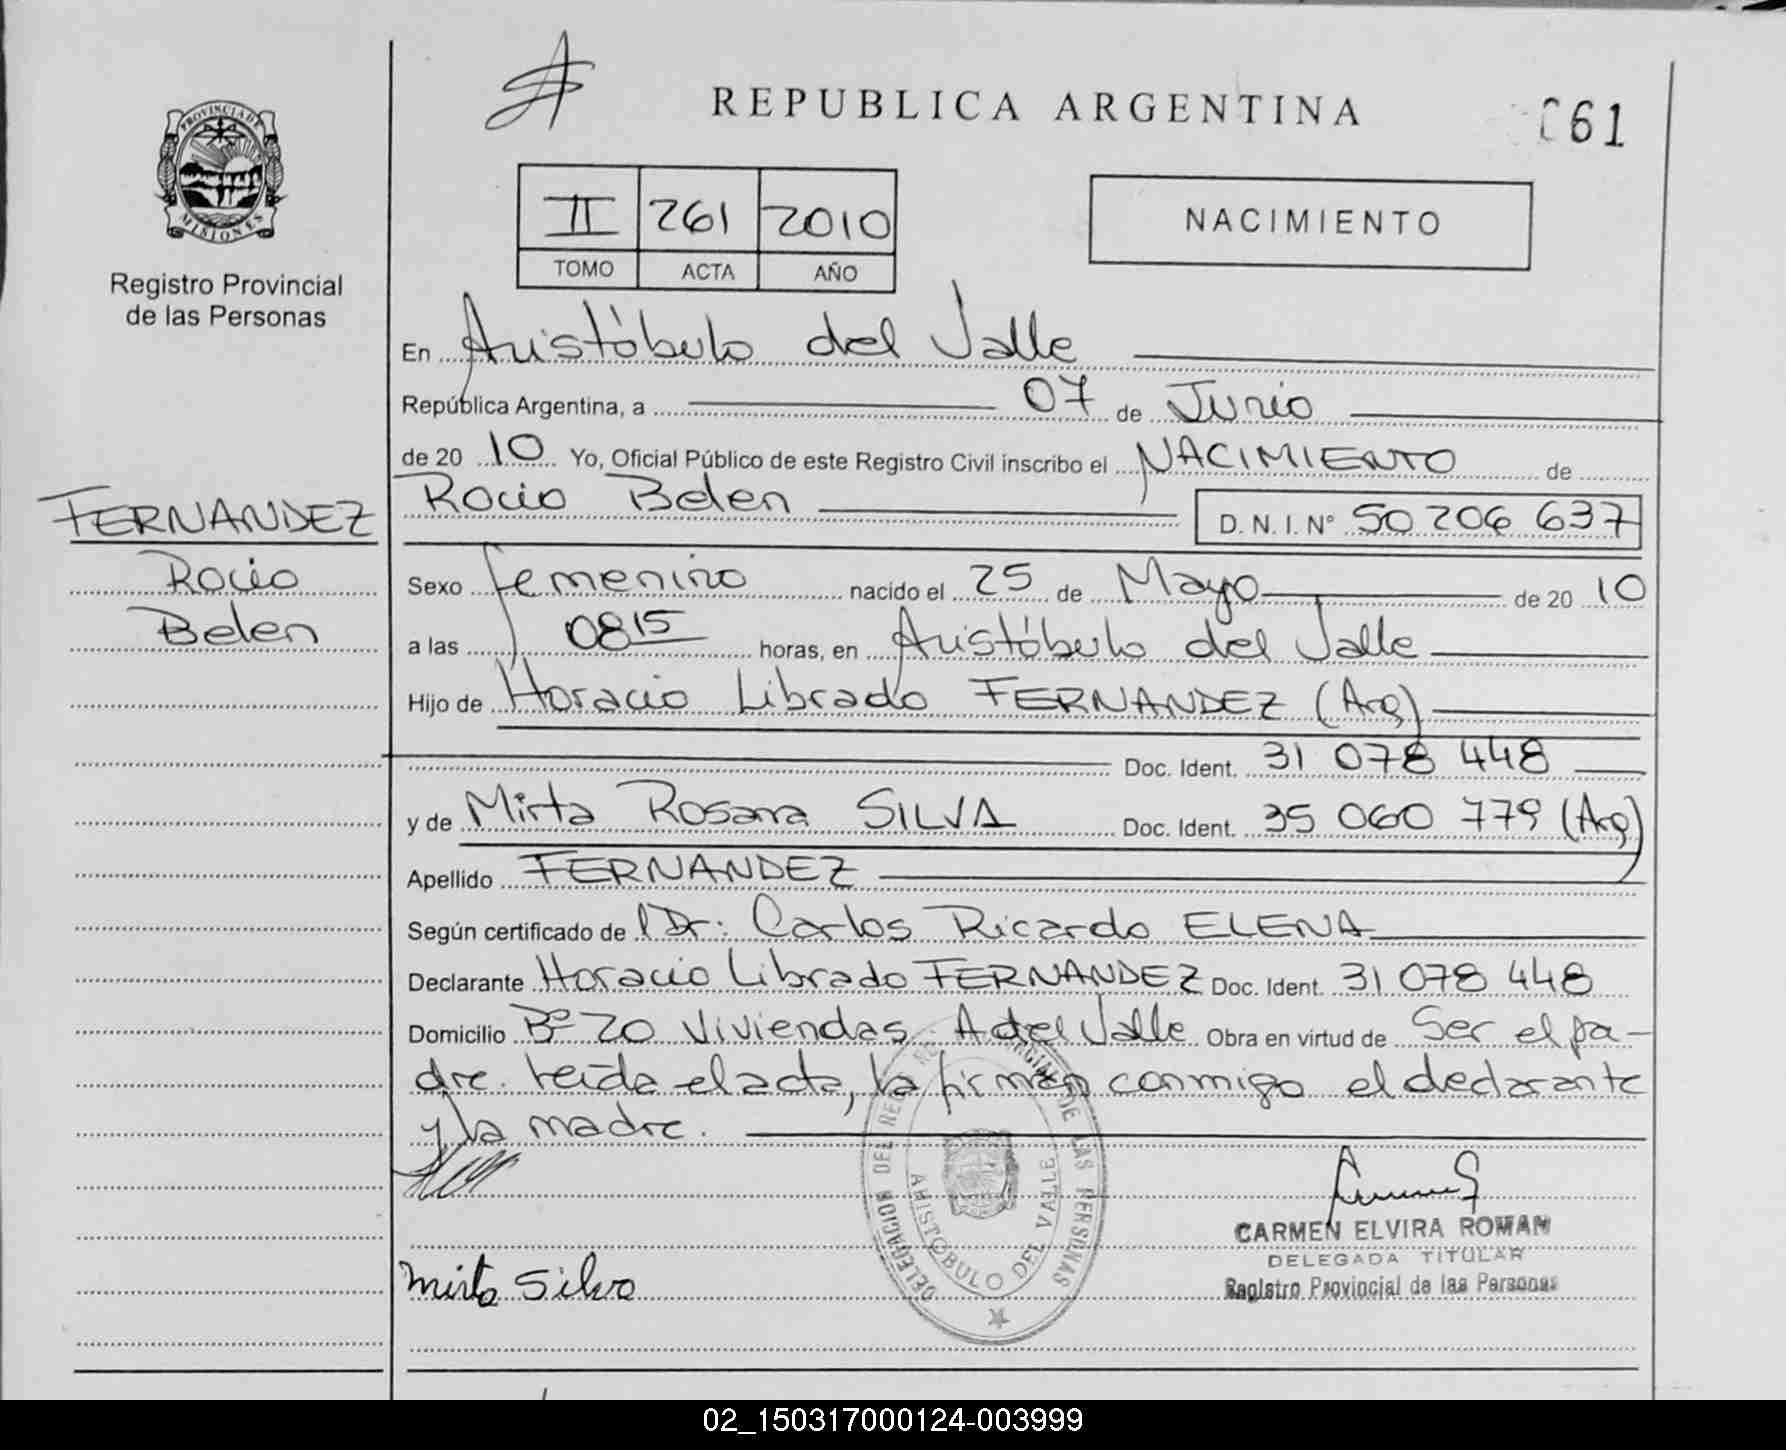 REPUBLICA ARGENTINA
061
PROVINCIA DE MISIONES
Registro Provincial
de las Personas
II 261 2010
TOMO ACTA AÑO
NACIMIENTO
En Aristóbulo del Valle
República Argentina, a 07 de Junio
de 20 10 Yo, Oficial Público de este Registro Civil inscribo el NACIMIENTO de
Rocio Belen D.N.I. Nº 50 206 637
FERNANDEZ
Rocio
Belen
Sexo femenino nacido el 25 de Mayo de 20 10
a las 08 15 horas, en Aristóbulo del Valle
Hijo de Horacio Librado FERNANDEZ (Arg)
Doc. Ident. 31 078 448
y de Mirta Rosana SILVA Doc. Ident. 35 060 779 (Arg)
Apellido FERNANDEZ
Según certificado de l Dr: Carlos Ricardo ELENA
Declarante Horacio Librado FERNANDEZ Doc. Ident. 31 078 448
Domicilio Bº 20 Viviendas. A del Valle Obra en virtud de Ser el pa-
dre. Leída el acta, la firman conmigo el declarante
y la madre.
DELEGACION DEL REGISTRO PROVINCIAL DE LAS PERSONAS
ARISTOBULO DEL VALLE
CARMEN ELVIRA ROMAN
DELEGADA TITULAR
Registro Provincial de las Personas
Mirta Silva
02_150317000124-003999